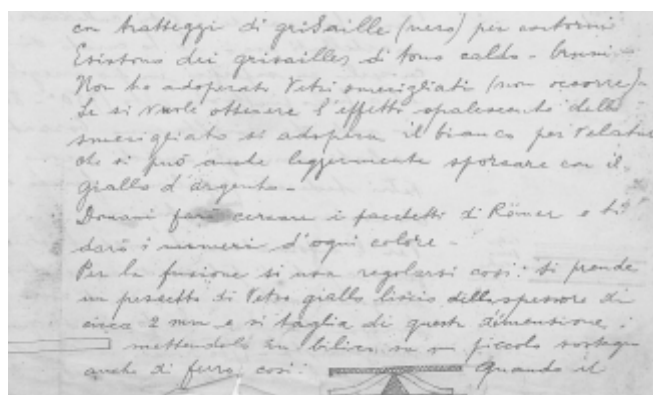 con tratteggi di grisaille (nero) per contorni
Esistono dei grisailles di tono caldo - bruni -
Non ho adoperato Vetri smerigliati (non occorre) -
Se si vuole ottenere l'effetto opalescente dello
smerigliato si adopera il bianco per velatur
che si può anche leggermente sporcare con il
giallo d'argento -
Domani farò cercare i pacchetti di Römer e ti
darò i numeri d'ogni colore -
Per la fusione si usa regolarsi così: si prende
un pezzetto di Vetro giallo liscio dello spessore di
circa 2 mm e si taglia di queste dimensione:
mettendolo in bilico su un piccolo sostegno
anche di ferro, così: Quando il